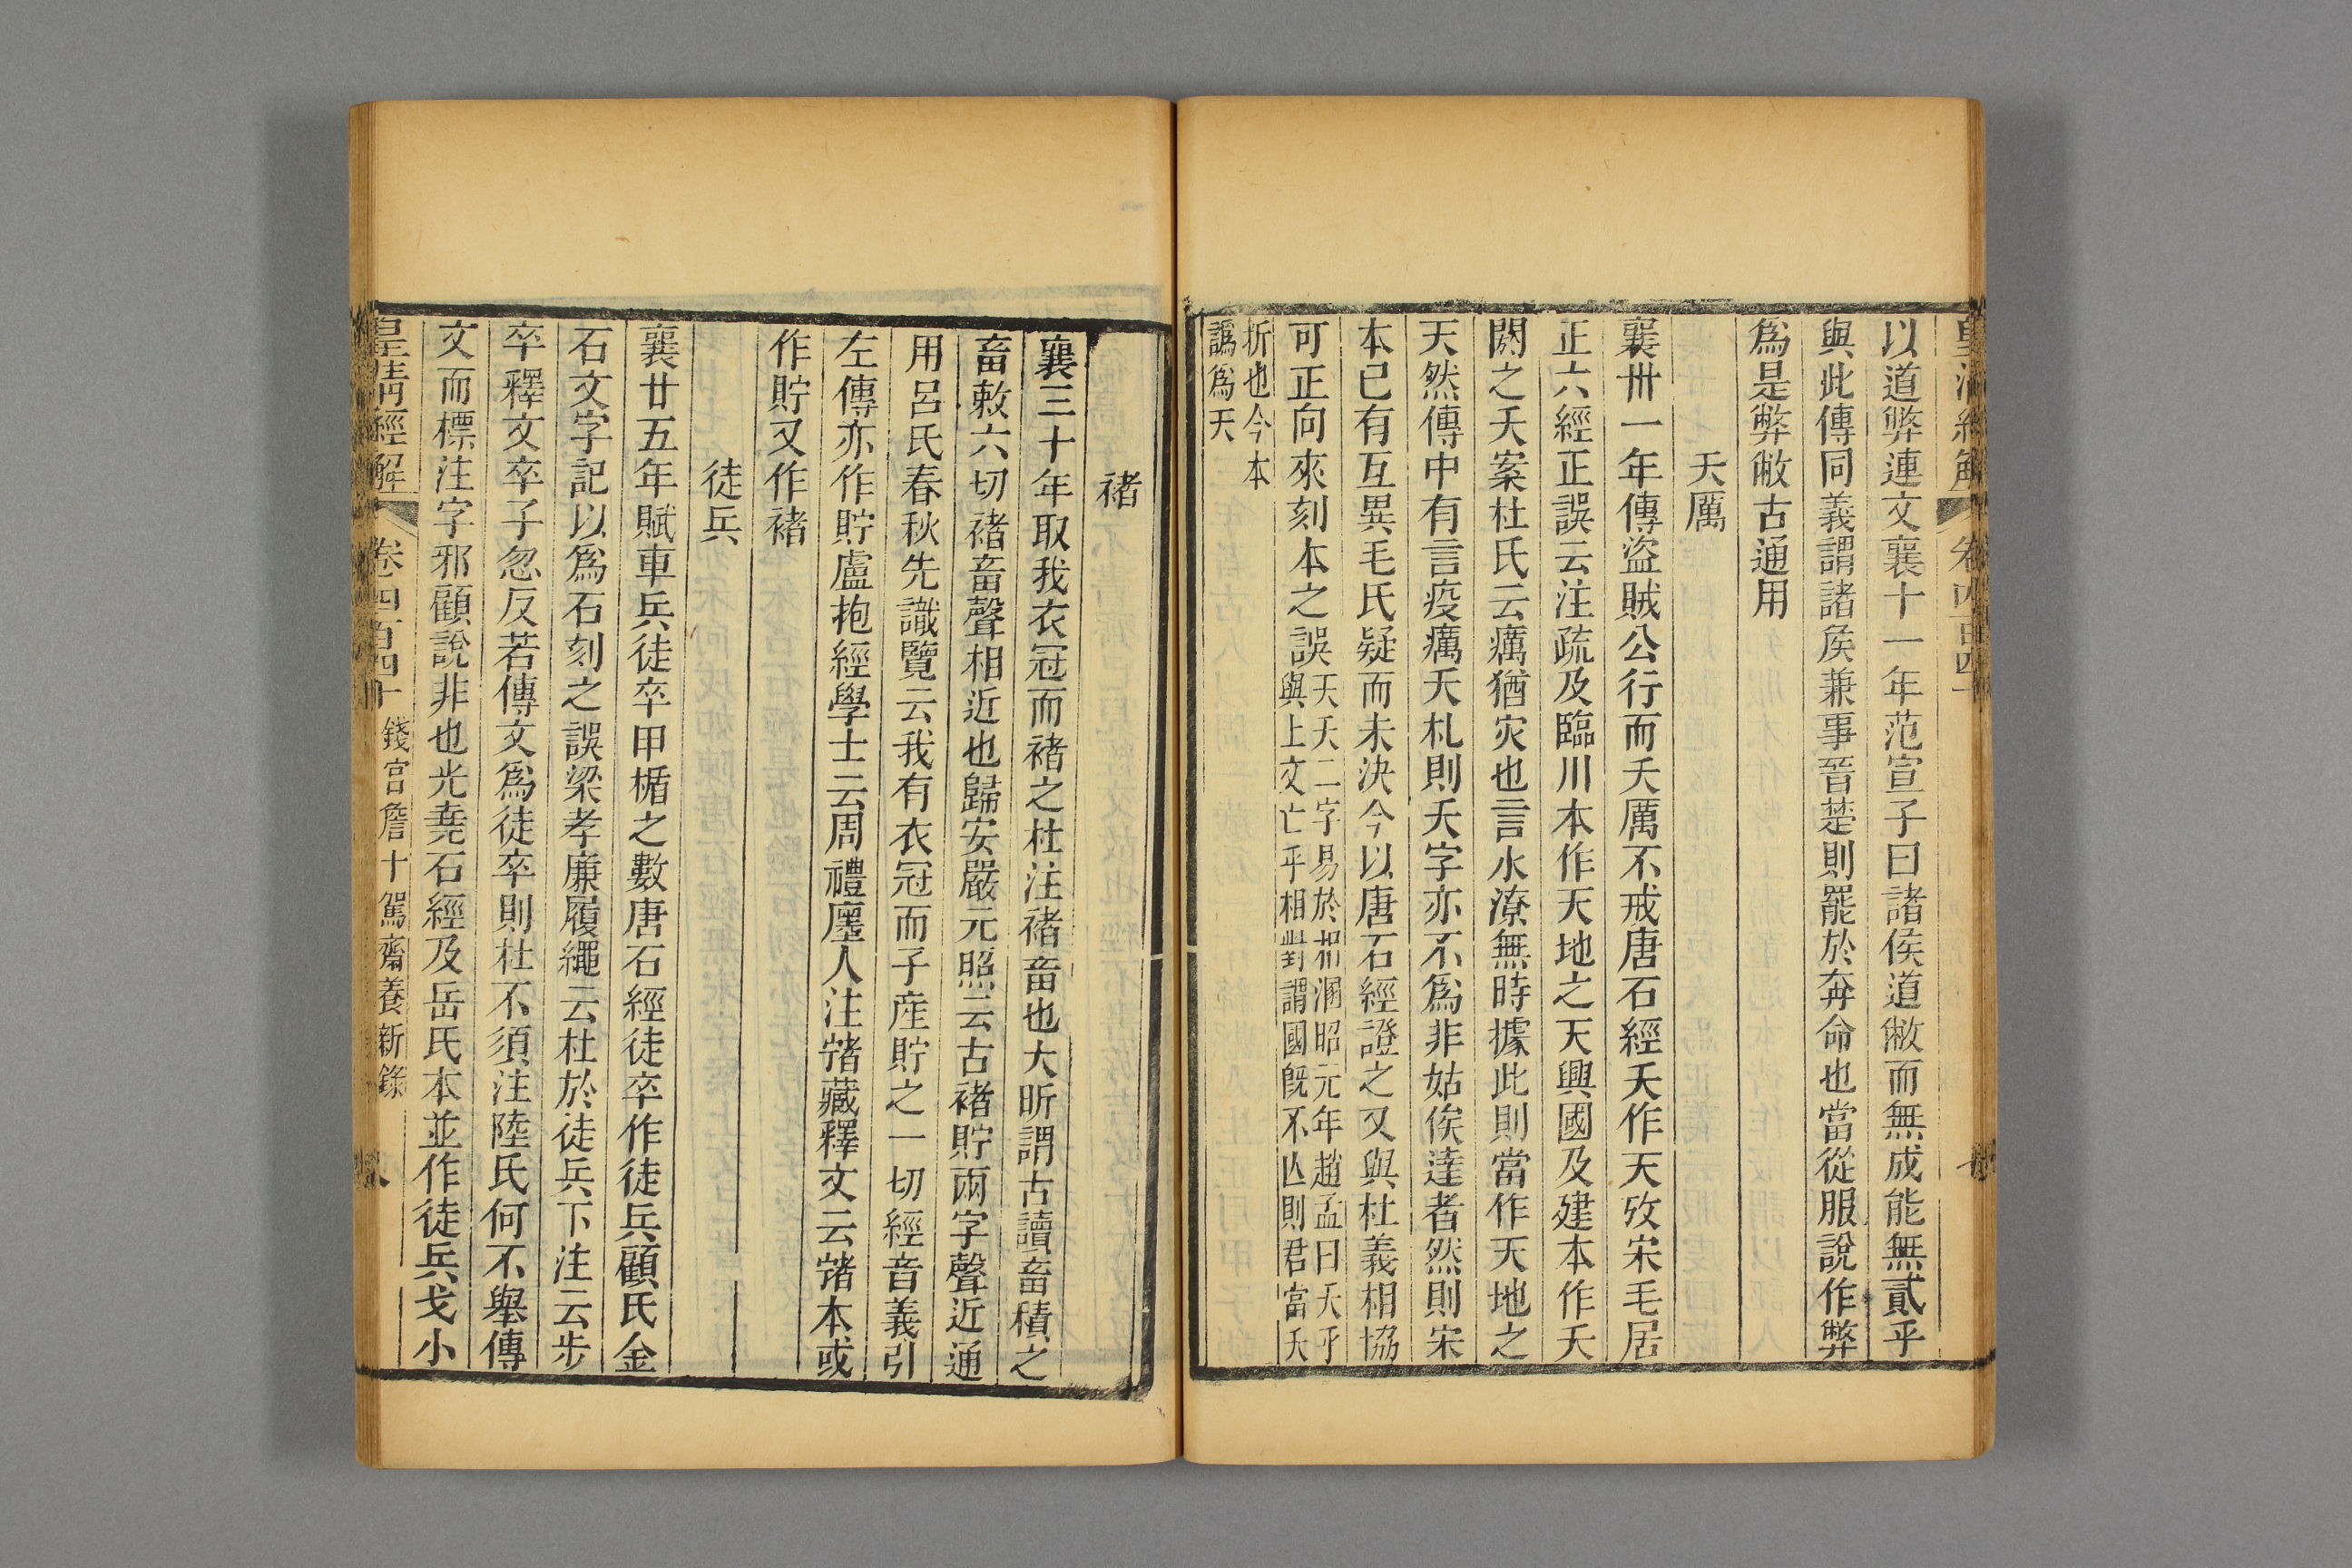 以道弊連文襄十一年范宣子曰諸侯道敝而無成能無貳乎
與此傳同義謂諸矦兼事晉楚則罷於奔命也當從服說作弊
爲是弊敝古通用
天厲
襄卅一年傳盜賊公行而夭厲不戒唐石經夭作天攷宋毛居
正六經正誤云注疏及臨川本作天地之天興國及建本作夭
閼之夭案杜氏云癘猶灾也言水潦無時據此則當作天地之
天然傳中有言疫癘夭札則夭字亦不爲非姑俟達者然則宋
本已有互異毛氏疑而未決今以唐石經證之又與杜義相協
可正向來刻本之誤天夭二字易於相溷昭元年趙孟曰夭乎
與上文亡乎相對謂國旣不亾則君當夭
折也今本
譌爲天
褚
襄三十年取我衣冠而褚之杜注褚畜也大昕謂古讀畜積之
畜敕六切褚畜聲相近也歸安嚴元照云古褚貯兩字聲近通
用呂氏春秋先識覽云我有衣冠而子産貯之一切經音義引
左傳亦作貯盧抱經學士云周禮廛人注㣥藏釋文云㣥本或
作貯又作褚
徒兵
襄廿五年賦車兵徒卒甲楯之數唐石經徒卒作徒兵顧氏金
石文字記以爲石刻之誤梁孝廉履繩云杜於徒兵下注云步
卒釋文卒子忽反若傳文爲徒卒則杜不須注陸氏何不舉傳
文而標注字邪顧說非也光堯石經及岳氏本並作徒兵戈小
皇淸經解
卷四百四十
錢宮詹十駕齋養新錄
八